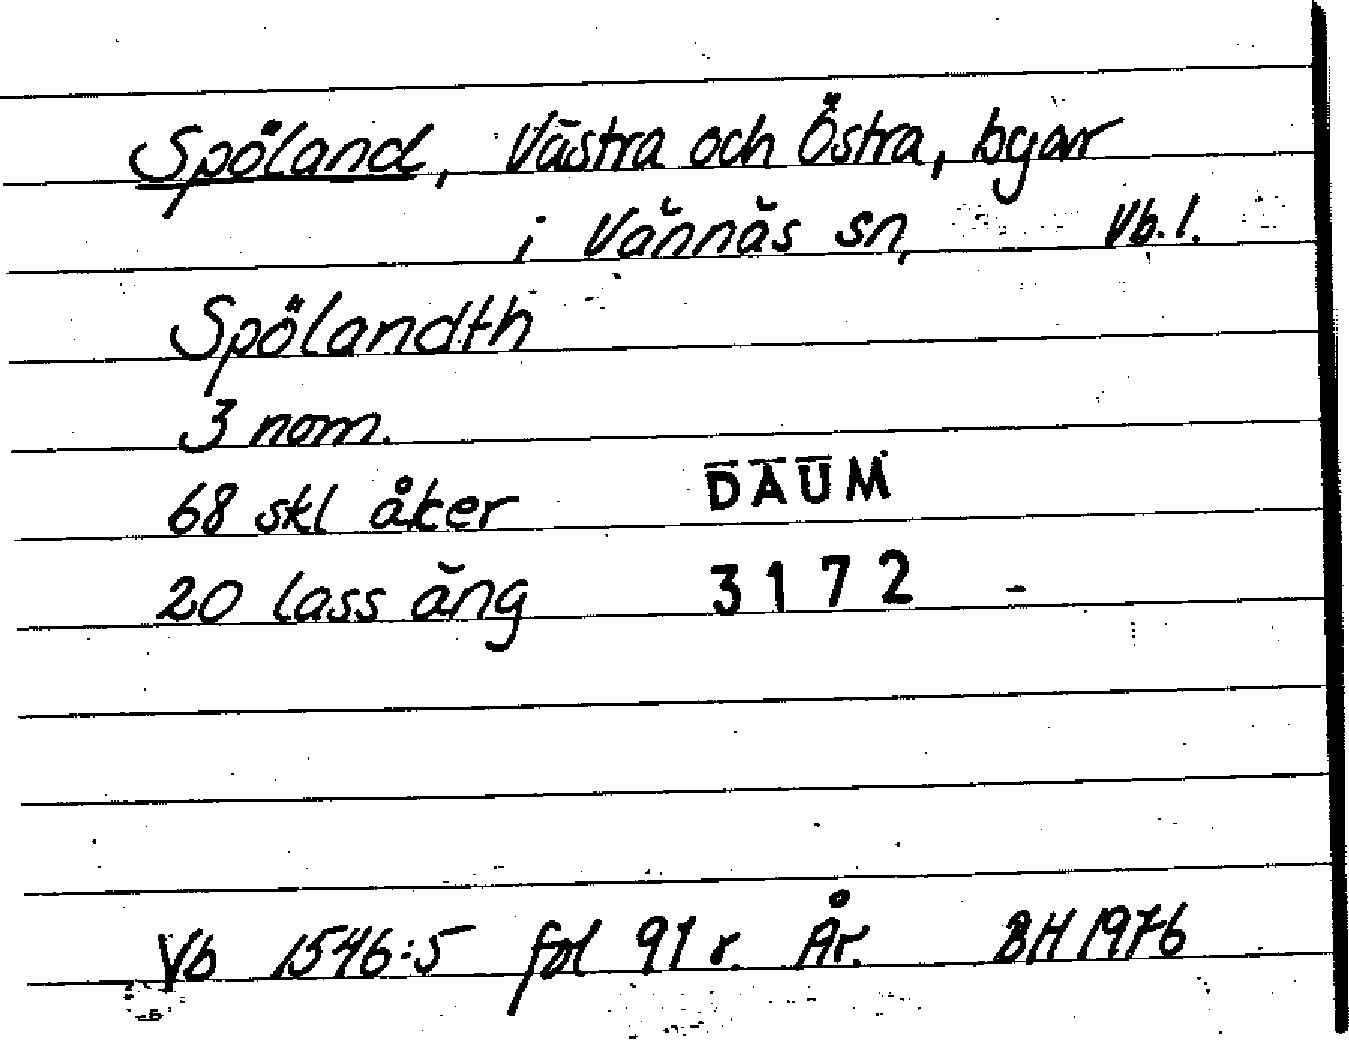 Spöland, Västra och Östra, byar
i Vännäs sn, Vb. l.
Spölandth
3 nom.
68 skl åker DAUM
20 lass äng 3172
Vb 1546:5 fol 91 r. År. BH 1976